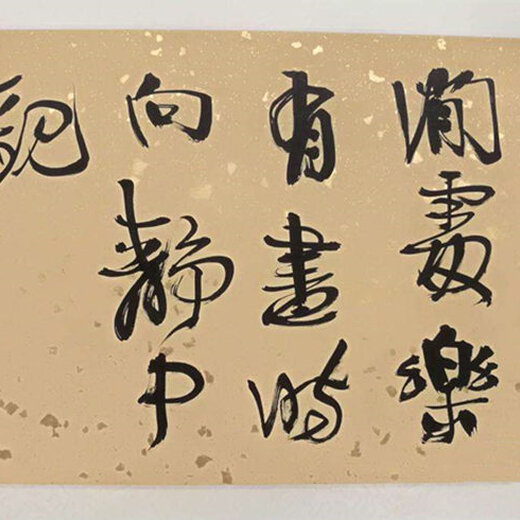 閒處樂
有書時
向靜中
觀